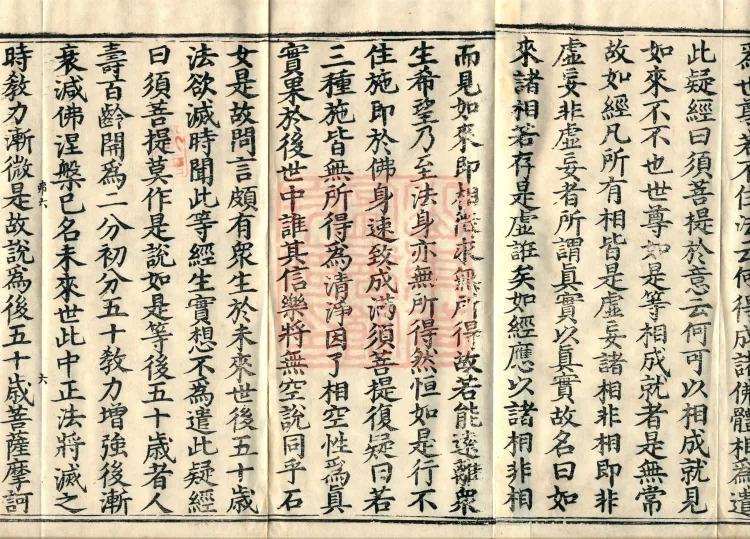 此疑經曰須菩提於意云何可以相成就見
如來不不也世尊如是等相成就者是無常
故如經凡所有相皆是虛妄諸相非相即非
虛妄非虛妄者所謂眞實以眞實故名曰如
來諸相若存是虛誑矣如經應以諸相非相
而見如來即相從來無所得故若能遠離衆
生希望乃至法身亦無所得然恒如是行不
住施即於佛身速致成滿須菩提復疑曰若
三種施皆無所得爲清淨因了相空性爲眞
實果於後世中誰其信樂將無空說同乎石
女是故問言頗有衆生於未來世後五十歲
法欲滅時聞此等經生實想不爲遣此疑經
曰須菩提莫作是說如是等後五十歲者人
壽百齡開爲二分初分五十教力增強後漸
衰減佛涅槃已名未來世此中正法將滅之
六
時教力漸微是故說爲後五十歲菩薩摩訶